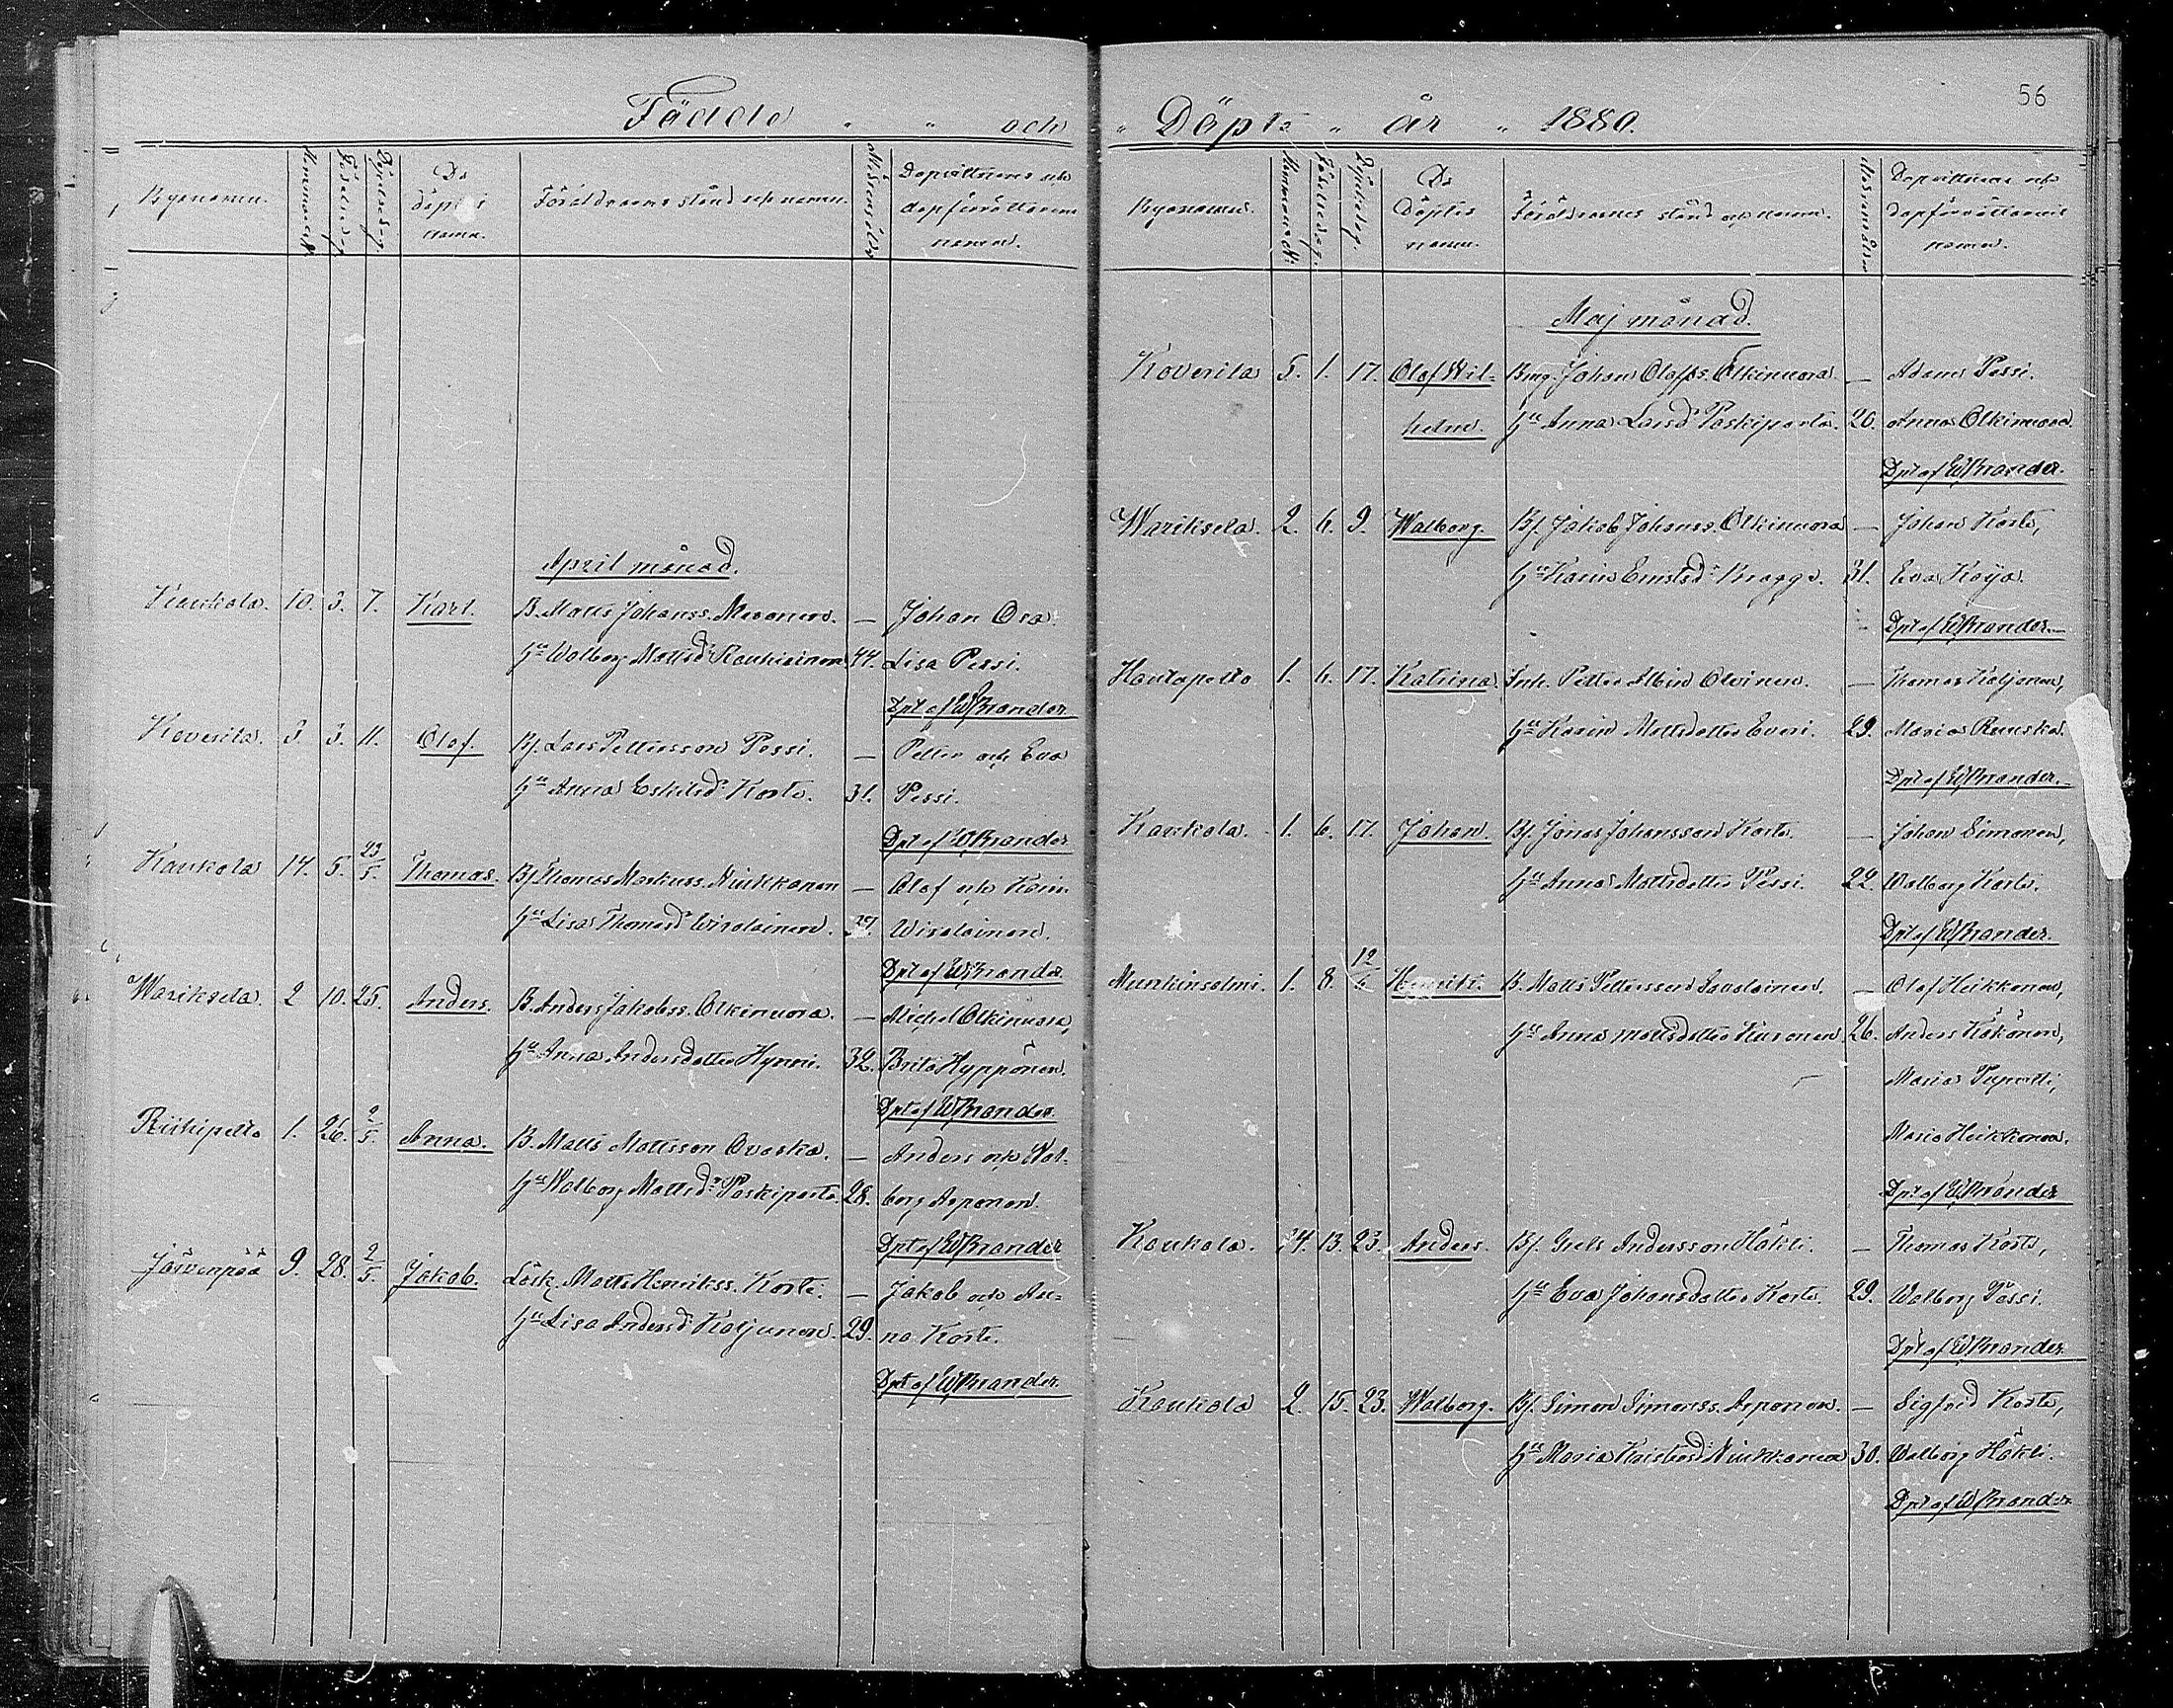 56
Födde och Döpte år 1880.
Bynamn. Hemmans № Födelsedag. Döpelsedag. De döptes namn. Föräldrarnes stånd och namn. Modrens ålder Dopvittnens och dopförrättarens namn.
April månad.
Kaukola. 10. 3. 7. Karl. B. Matts Johanss. Meronen. — Johan Ora.
Hu Walborg Mattsdr Raukiainen 44. Lisa Pessi.
Dpt af W Brander
Koverila. 3. 3. 11. Olof. Bf. Lars Pettersson Pessi. — Petter och Eva
Hu Anna Eskilsdr Korte. 31. Pessi.
Dpt af W Brander
Kaukola 14. 5. 23/5. Thomas. Bf Thomas Markuss. Niukkanen — Olof och Karin
Hu Lisa Thomasdr Wirolainen. Wirolainen.
Dpt af W Brander
Warikselä. 2 10. 25. Anders. B. Anders Jakobss. Olkinuora. — Michel Olkinuora,
Hu Anna Andersdotter Hynni. 32. Brita Hyppönen.
Dpt af W Brander.
Riihipelto 1. 26. 2/5. Anna. B. Matts Mattsson Ovaska. — Anders och Wal-
Hu Walborg Mattsdr Paskiparta. 28. borg Asponen.
Dpt af W Brander
Järvenpää 9. 28. 2/5. Jakob. Lösk. Matts Henrikss. Korte. — Jakob och An-
Hu Lisa Andersdr Katjunen. 29. na Korte.
Dpt af W Brander.
Bynamn. Hemmans № Födelsedag. Döpelsedag. De Döptes namn. Föräldrarnes stånd och namn. Modrens ålder Dopvittnens och dopförrättarens namn.
Maj månad.
Koverila 5. 1. 17. Olof Wil- Bmg. Johan Olofss. Olkinuora. — Adam Pessi.
helm. Hu Anna Larsdr Paskiparta. 20. Anna Olkinuora.
Dpt af W Brander.
Warikselä. 2. 6. 9. Walborg. Bf. Jakob Johanss. Olkinuora — Johan Korte,
Hu Karin 31. Eva Koya.
Dpt af W Brander.
Hautapelto 1. 6. 17. Katrina. Inh. Petter Albin Olvinen. — Thomas Katjonen,
Hu Karin Mattsdotter Everi. 29. Maria Ruuska.
Dpt af W Brander.
Kaukola. 1. 6. 17. Johan. Bf. Jonas Johansson Korte. — Johan Simonen,
Hu Anna Mattsdotter Pessi. 22. Walborg Korte.
Dpt af W Brander.
Munkinsalmi. 1. 8. 12/6 Henrik. B. Matts Pettersson Savolainen. — Olof Heikkonen,
Hu Anna Mattsdotter Kuronen 26. Anders Käkönen,
Maria
Maria Heikkonen.
Dpt af W Brander
Kaukola. 24. 13. 23. Anders. Bf. Grels Andersson Häkli. — Thomas Korte,
Hu Eva Johansdotter Korte. 29. Walborg Pessi.
Dpt af W Brander.
Kaukola 2. 15. 23. Walborg. Bf. Simon Simonss. Asponen. — Sigfrid Korte,
Hu Maria Kristersdr Niukkanen 30. Walborg Häkli.
Dpt af W Brander